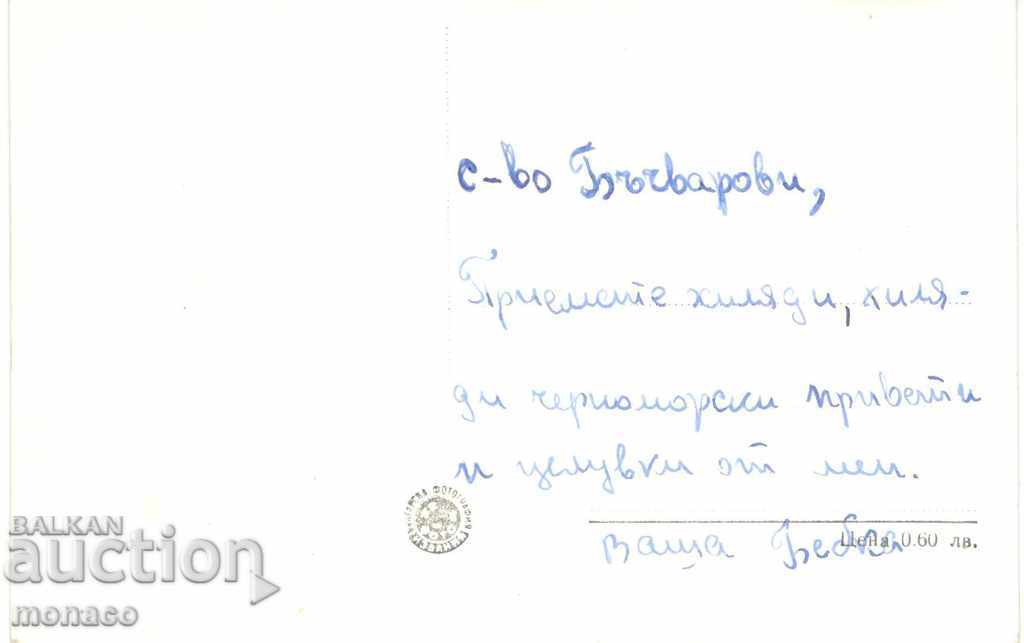 с-во Бъчварови,
Приемате хиляди, хиля-
ди черноморски привети
и целувки от мен.
Цена 0.60 лв.
Ваша Бебка
BALKAN
auction
monaco